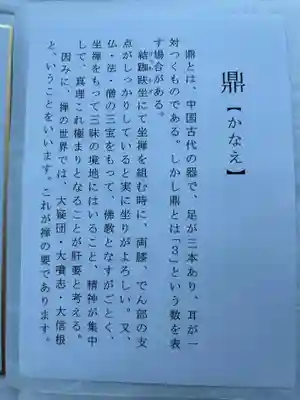 鼎【かなえ】
鼎とは、中国古代の器で、足が三本あり、耳が一
対つくものである。しかし鼎とは「３」という数を表
す場合がある。
結跏趺坐にて坐禅を組む時に、両膝、でん部の支
点がしっかりしていると実に坐りがよろしい。又、
仏・法・僧の三宝をもって、佛教となすがごとく、
坐禅をもって三昧の境地にはいること、精神が集中
して、真理これ極まりとなることが肝要と考える。
因みに、禅の世界では、大疑団・大噴志・大信根
と、いうことをいいます。これが禅の要であります。